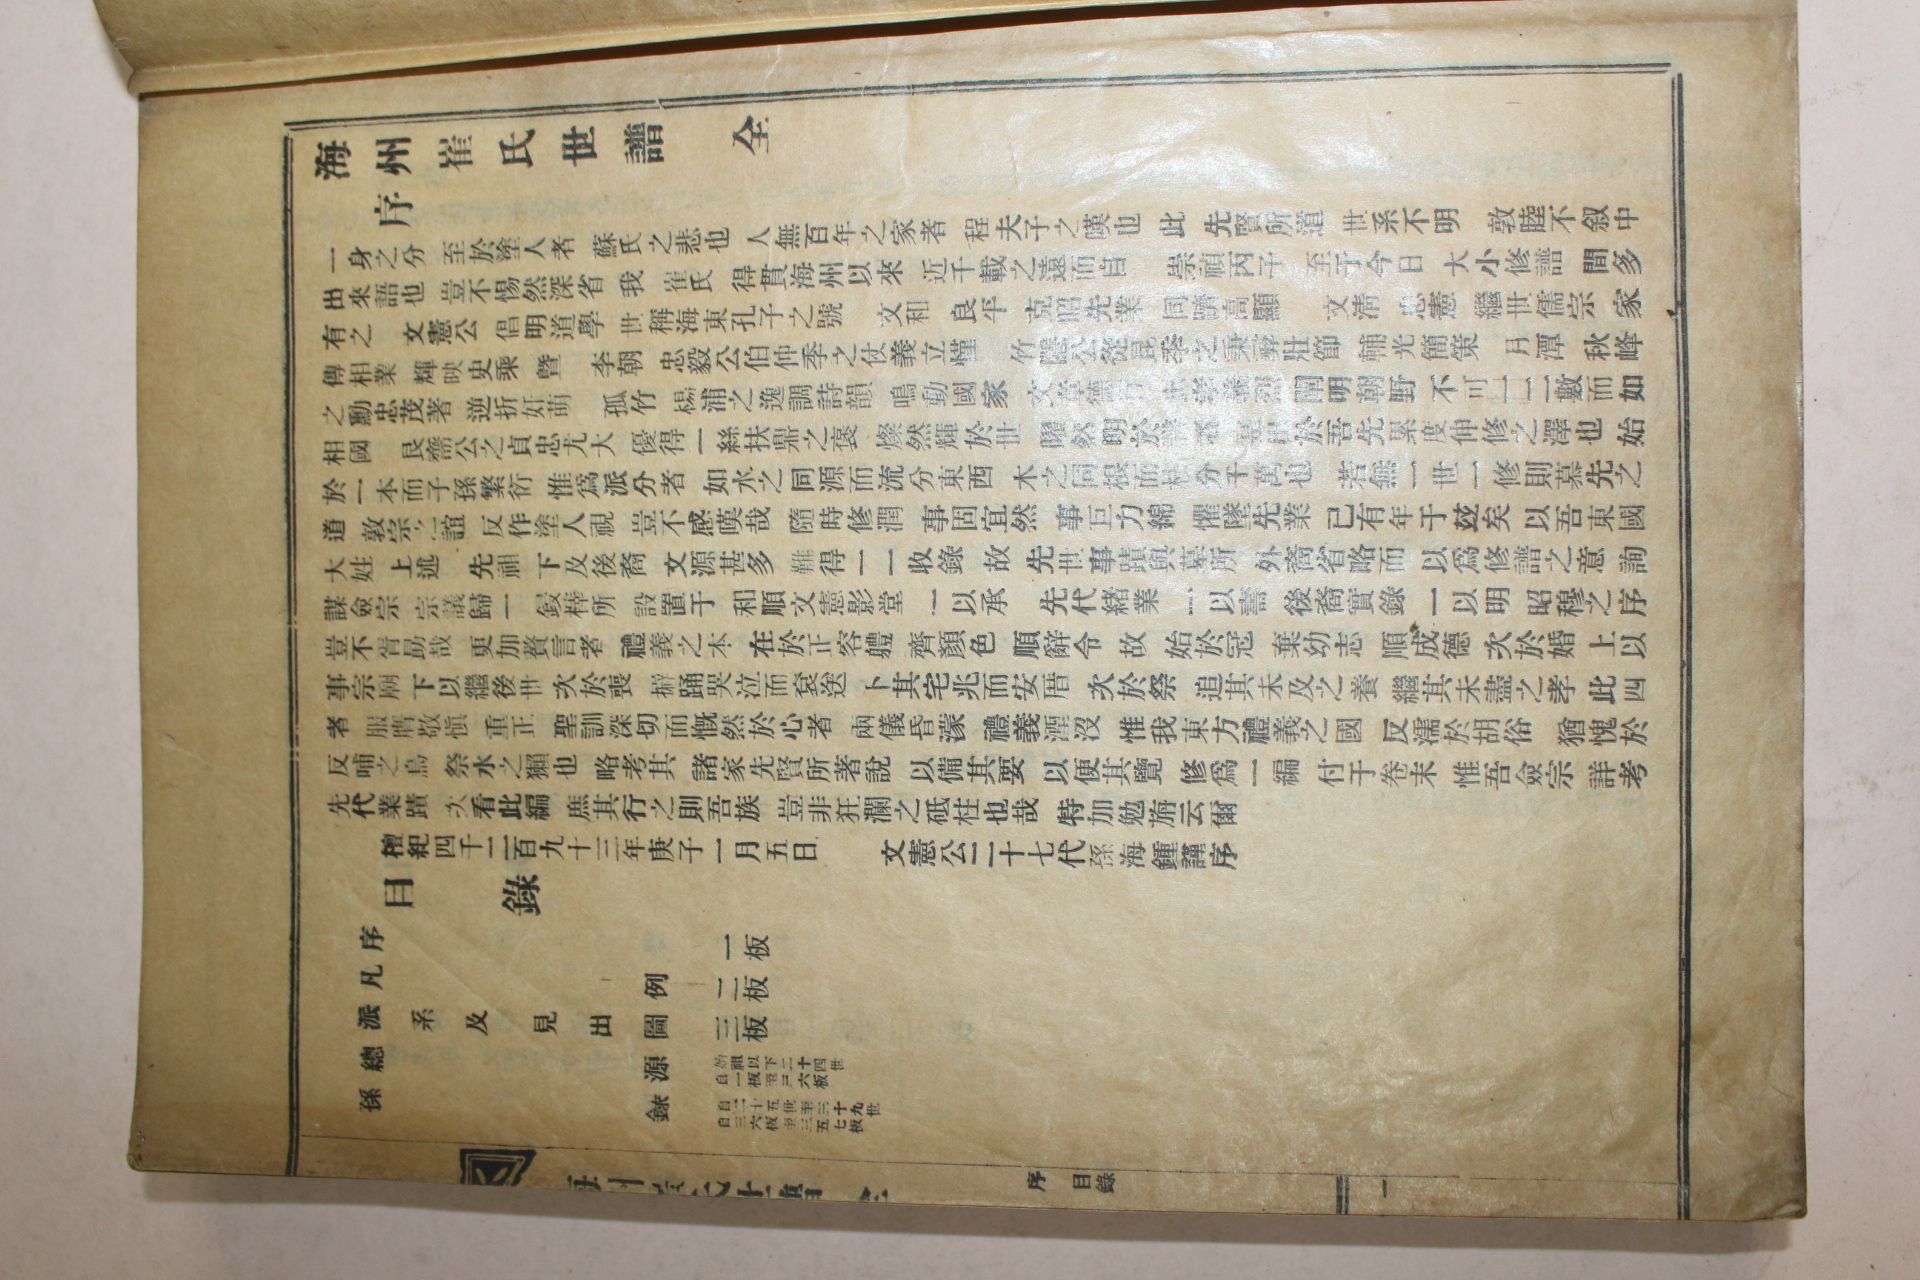 海州崔氏世譜 全
序
一身之分 至於塗人者 蘇氏之悲也 人無百年之家者 程夫子之嘆也 此 先賢所道 世系不明 敦睦不叙中
出來語也 豈不惕然深省 我 崔氏 得貫海州以來 近千載之遠而自 崇禎丙子 至于今日 大小修譜 間多
有之 文憲公 倡明道學 世稱海東孔子之號 文和 良平 克昭先業 同躋高顯 文淸 忠憲 繼世儒宗 家
傳相業 輝映史乘 曁 李朝 忠毅公伯仲季之仗義立慬 竹隱公從昆季之秉彛壯節 輔光簡策 月潭 秋峰
之勳忠茂著 逆折奸萌 孤竹 楊浦之逸調詩韻 鳴動國家 文章 闡明朝野 不可一一二數而如
相國 艮齋公之貞忠尤大 優得一絲扶鼎之褒 燦然輝於世 曜然明於 於吾先累度伸修之澤也 始
於一本而子孫繁衍 惟爲派分者 如水之同源而流分東西 木之同根而枝分千萬也 若無一世一修則慕先之
道 敦宗之誼 反作塗人視 豈不感嘆哉 隨時修潤 事固宜然 事巨力綿 懼隊先業 已有年于玆矣 以吾東國
大姓 上述 先祖 下及後裔 文源甚多 難得一一收錄 故 先世事蹟與墓所 外裔省略而 以爲修譜之意 詢
謀僉宗 宗議歸一 鋟榟所 設置于 和順文憲影堂 一以承 先代緖業 一以壽 後裔實錄 一以明 昭穆之序
豈不肯勗哉 更加贅言者 禮義之本 在於正容體 齊顏色 順辭令 故 始於冠 棄幼志 順成德 次於婚 上以
事宗廟 下以繼後世 次於喪 擗踊哭泣而哀送 卜其宅兆而安厝 次於祭 追其未及之養 繼其未盡之孝 此四
者 服膺敬愼 重正 聖訓深切而慨然於心者 兩儀昏濛 禮義湮沒 惟我東方禮義之國 反濡於胡俗 猶愧於
反哺之烏 祭水之獺也 略考其 諸家先賢所著說 以備其要 以便其覽 修爲一編 付于卷末 惟吾僉宗 詳考
先代業蹟 次看此編 庶其行之則吾族 豈非狂瀾之砥柱也哉 特加勉旃云爾
檀紀四千二百九十三年庚子一月五日 文憲公二十七代孫海鍾謹序
目 錄
序 一板
凡例 二板
派系及見出圖 三板
總源 自始祖以下二十四世 自一板至三六板
孫錄 自二十五世至三十九世 自三六板至三五七板
序 目錄
一